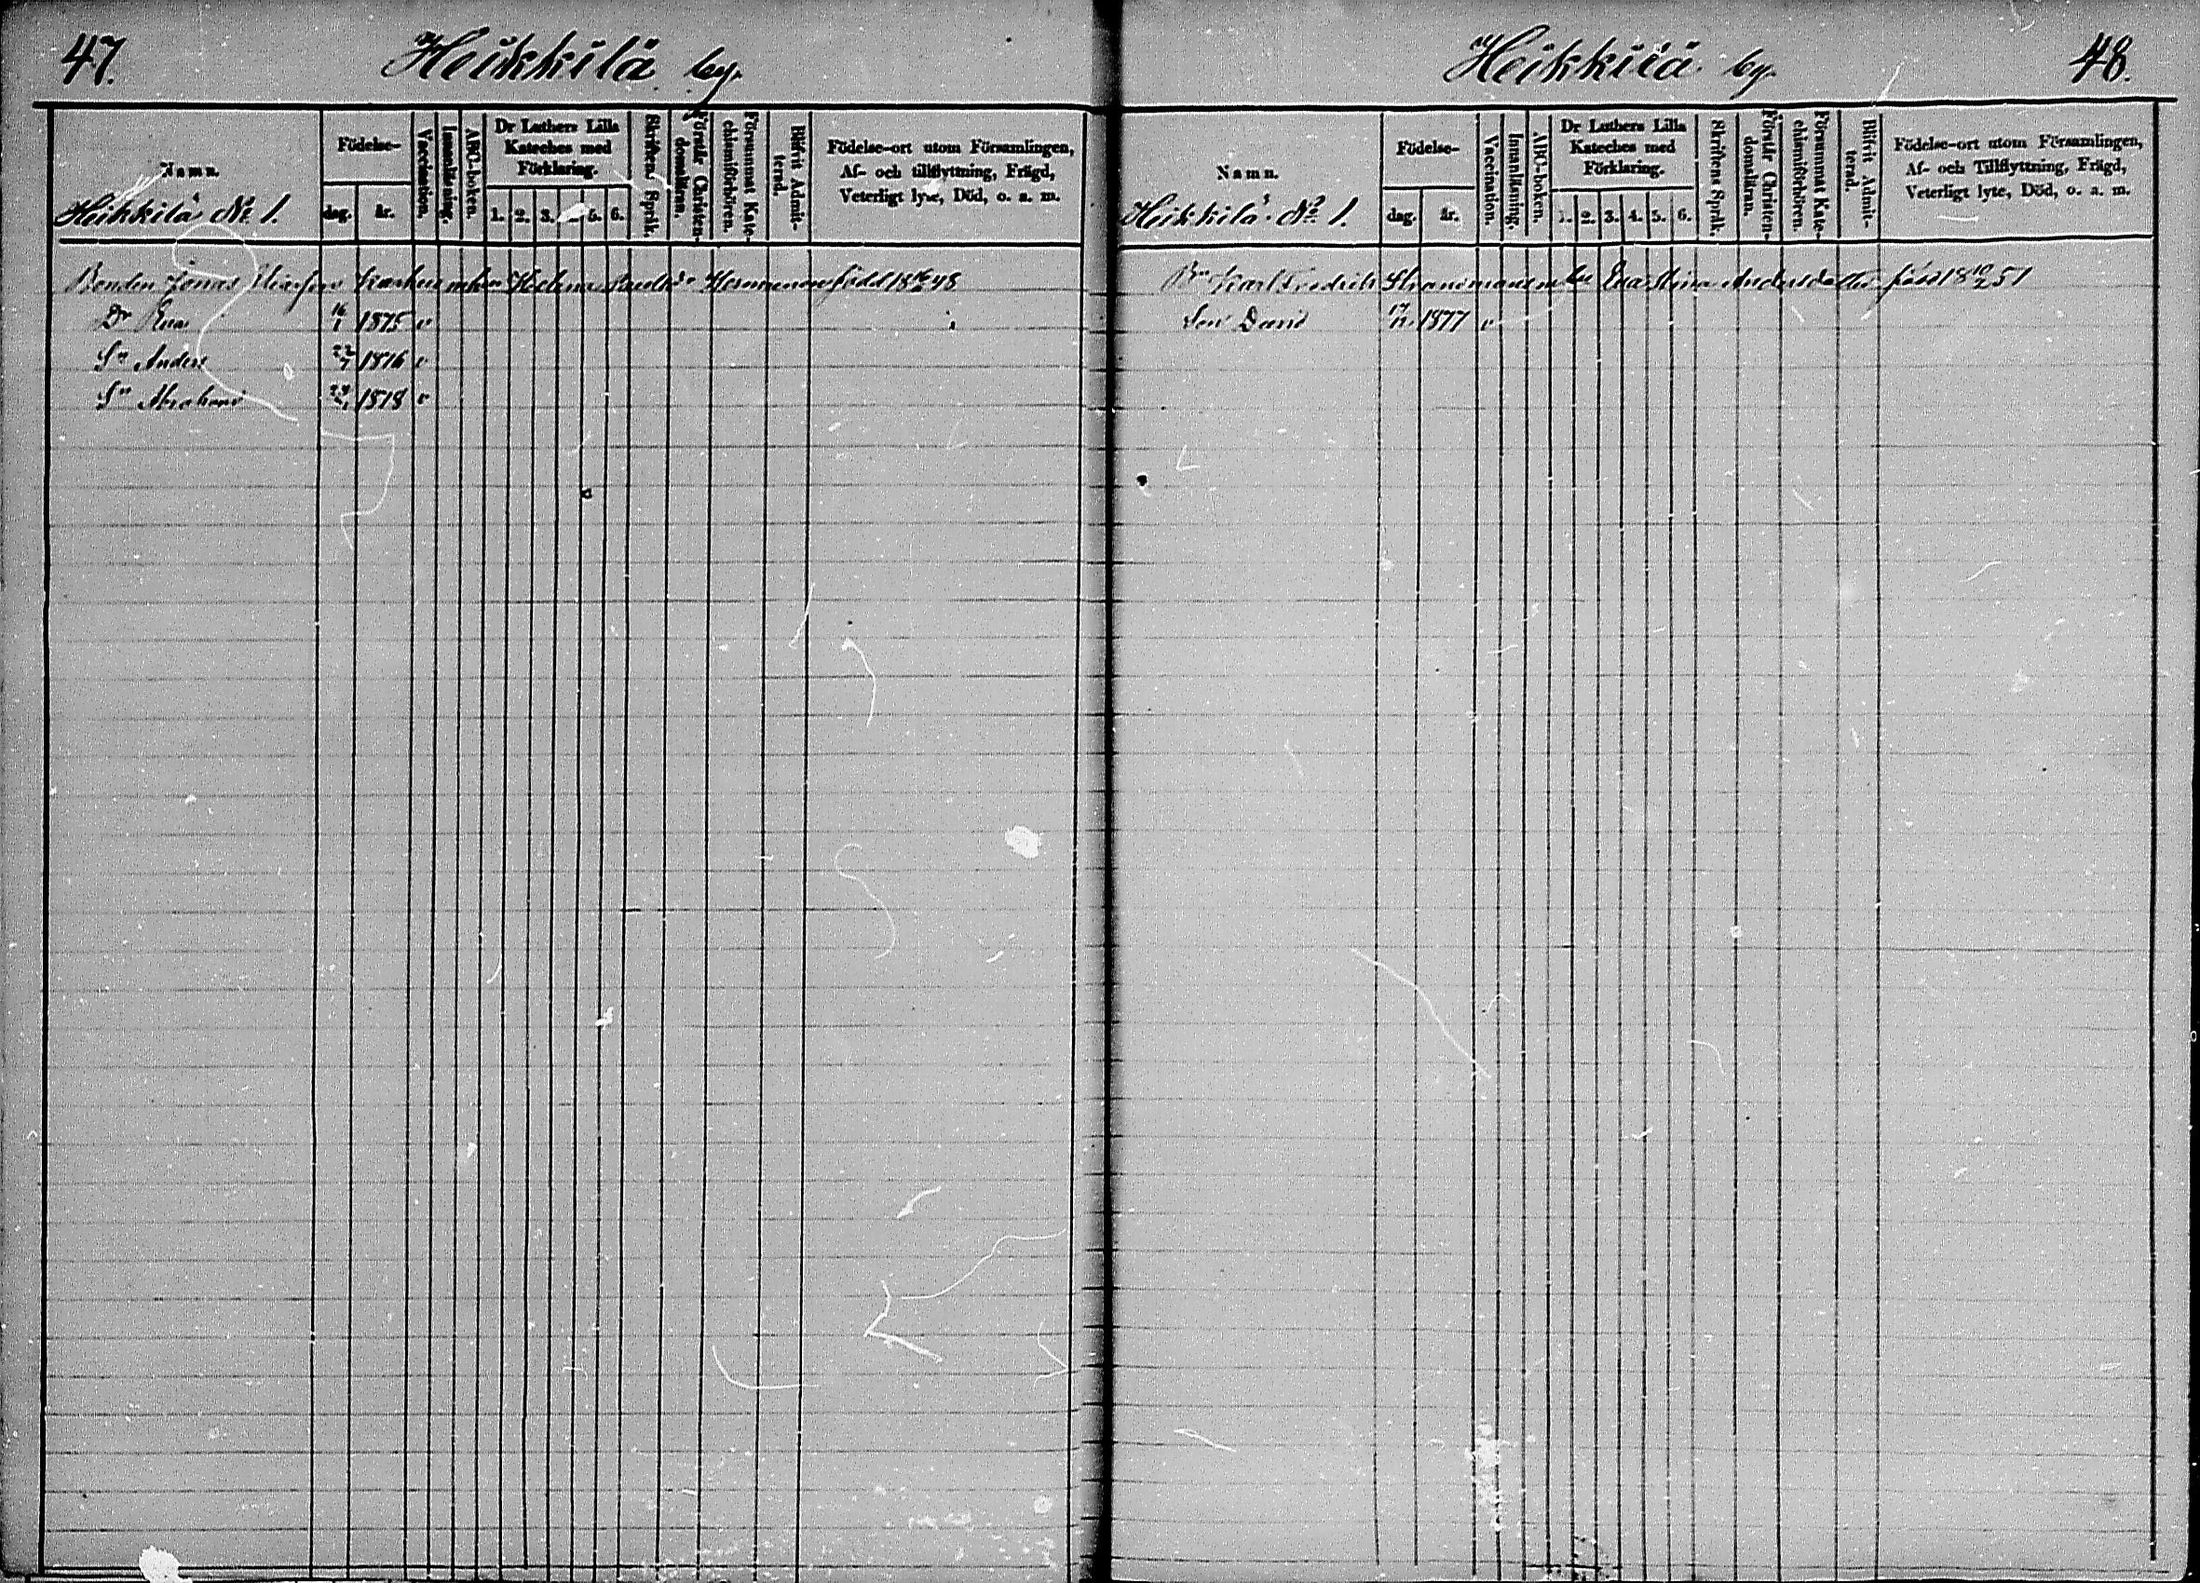 47.
Heikkilä by.
Namn.
Heikkilä № 1.
Födelse-
dag. år.
Vaccination.
Innanläsning.
ABC-boken.
Dr Luthers Lilla
Kateches med
Förklaring.
1. 2. 3. 5. 6.
Skriftens Språk.
Förstår Christen-
domsläran.
Försummat Kate-
chismiförhören.
Blifvit Admit-
terad.
Födelse-ort utom Församlingen,
Af- och tillflyttning, Frägd,
Veterligt lyte, Död, o. a. m.
Bonden Jonas Helena född 18 48
Dr Eva 16/1 1875 v
Sn Anders 1876 v
Sn Abraham 1878 v
Heikkilä by.
48.
Namn.
Heikkilä № 1.
Födelse-
dag. år.
Vaccination.
Innanläsning.
ABC-boken.
Dr Luthers Lilla
Kateches med
Förklaring.
1. 2. 3. 4. 5. 6.
Skriftens Språk.
Förstår Christen-
domsläran.
Försummat Kate-
chismiförhören.
Blifvit Admit-
terad.
Födelse-ort utom Församlingen,
Af- och Tillflyttning, Frägd,
Veterligt lyte, Död, o. a. m.
Bn Karl Fredrik Eva Stina Andersdotter född 18 51
Son David 1877 v